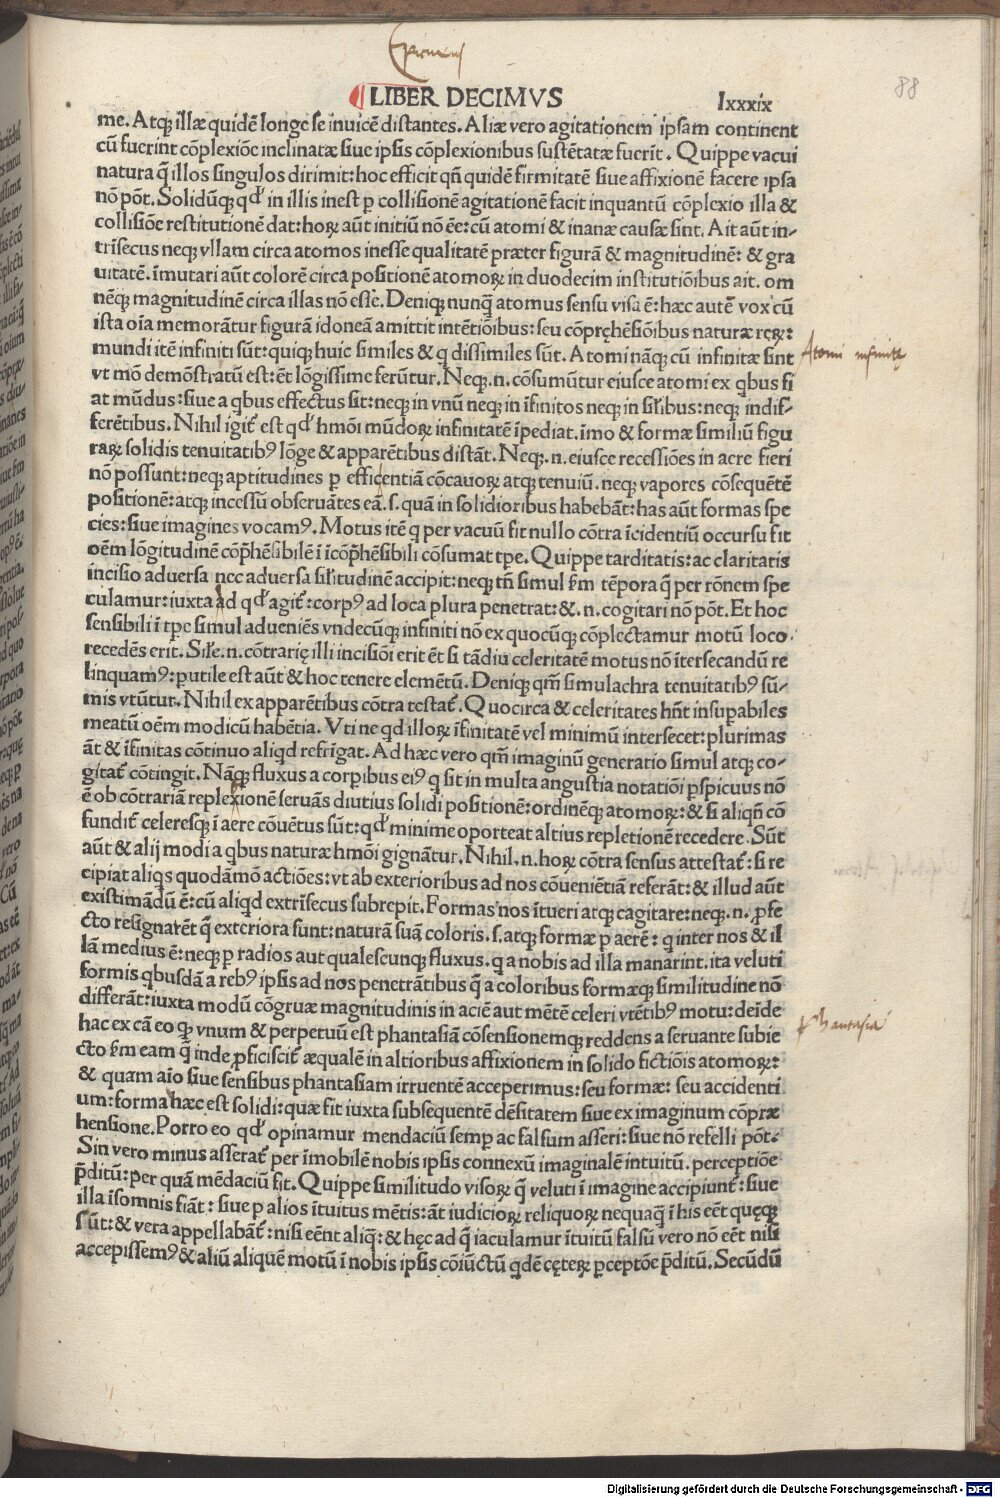 88
LIBER DECIMVS lxxxix
me. Atqꝫ illæ quidē longe se inuicē distantes. Aliæ vero agitationem ipsam continent
cū fuerint cōplexiōe inclinatæ siue ipsis cōplexionibus sustētatæ fuerīt. Quippe vacui
natura q̄ illos singulos dirimit: hoc efficit qn̄ quidē firmitatē siue affixionē facere ipsa
nō pōt. Solidūqꝫ qđ in illis inest p collisionē agitationē facit inquantū cōplexio illa &
collisiōe restitutionē dat: hoꝝ aūt initiū nō ēe: cū atomi & inanæ causæ sint. Ait aūt in-
trīsecus neqꝫ vllam circa atomos inesse qualitatē præter figurā & magnitudinē: & gra
uitatē. īmutari aūt colorē circa positionē atomoꝝ in duodecim institutiōibus ait. om
nēqꝫ magnitudinē circa illas nō esse. Deniqꝫ nunq̄ atomus sensu visa ē: hæc autē vox cū
ista oīa memorātur figurā idoneā amittit intētiōibus: seu cōpręhēsiōibus naturæ reꝝ:
mundi itē infiniti sūt: quiqꝫ huic similes & q dissimiles sūt. Atomi nāqꝫ cū infinitæ sint
Atomi infinitę
vt mō demōstratū est: ēt lōgissime ferūtur. Neqꝫ .n. cōsumūtur eiusce atomi ex qbus fi
at mūdus: siue a qbus effectus sit: neqꝫ in vnū neqꝫ in īfinitos neqꝫ in sil̄ibus: neqꝫ indif-
ferētibus. Nihil igit̄ est qđ hmōi mūdoꝝ infinitatē īpediat. īmo & formæ similiū figu
raꝝ solidis tenuitatibꝰ lōge & apparētibus distāt. Neqꝫ .n. eiusce recessiōes in aere fieri
nō possunt: neqꝫ aptitudines p efficentiā cōcauoꝝ atqꝫ tenuiū. neqꝫ vapores cōsequētē
positionē: atqꝫ incessū obseruātes eā .s. quā in solidioribus habebāt: has aūt formas spe
cies: siue imagines vocamꝰ. Motus itē q per vacuū fit nullo cōtra īcidentiū occursu fit
oēm lōgitudinē cōp̄hēsibilē ī īcōp̄hēsibili cōsumat tpe. Quippe tarditatis: ac claritatis
incisio aduersa nec aduersa sil̄itudinē accipit: neqꝫ tn̄ simul f̄m tēpora q̄ per rōnem spe
culamur: iuxta ad qđ agit̄: corpꝰ ad loca plura penetrat: & .n. cogitari nō pōt. Et hoc
sensibili ī tpe simul adueniēs vndecūqꝫ infiniti nō ex quocūqꝫ cōplectamur motū loco
recedēs erit. Sil̄e .n. cōtrarię illi incisiōi erit ēt si tādiu celeritatē motus nō ītersecandū re
linquamꝰ: putile est aūt & hoc tenere elemētū. Deniqꝫ qm̄ simulachra tenuitatibꝰ sū-
mis vtūtur. Nihil ex apparētibus cōtra testat̄. Quocirca & celeritates hn̄t insupabiles
meatū oēm modicū habētia. Vti ne qd illoꝝ īfinitatē vel minimū intersecet: plurimas
āt & īfinitas cōtinuo aliqd refrīgat. Ad hæc vero qm̄ imaginū generatio simul atqꝫ co-
gitat̄ cōtingit. Nāqꝫ fluxus a corpibus eiꝰ q sit in multa angustia notatiōi pspicuus nō
ē ob cōtrariā replexionē seruās diutius solidi positionē: ordinēqꝫ atomoꝝ: & si aliqn̄ cō
fundit̄ celeresqꝫ ī aere cōuētus sūt: qđ minime oporteat altius repletionē recedere. Sūt
aūt & alij modi a qbus naturæ hmōi gignātur. Nihil .n. hoꝝ cōtra sensus attestat̄: si re
cipiat aliqs quodāmō actiōes: vt ab exterioribus ad nos cōueniētiā referāt: & illud aūt
existimādū ē: cū aliqd extrīsecus subrepit. Formas nos ītueri atqꝫ cagitare: neqꝫ .n. ꝓfe
cto resignarēt q̄ exteriora sunt: naturā suā coloris .s. atqꝫ formæ p aerē: q inter nos & il
lā medius ē: neqꝫ p radios aut qualescunqꝫ fluxus. q a nobis ad illa manarint. ita veluti
formis qbusdā a rebꝰ ipsis ad nos penetrātibus q̄ a coloribus formæqꝫ similitudine nō
differāt: iuxta modū cōgruæ magnitudinis in aciē aut mētē celeri vtētibꝰ motu: deīde
phantasia
hac ex cā eo qꝫ vnum & perpetuū est phantasiā cōsensionemqꝫ reddens a seruante subie
cto f̄m eam q̄ inde ꝓficiscit̄ æqualē in altioribus affixionem in solido fictiōis atomoꝝ:
& quam aīo siue sensibus phantasiam irruentē acceperimus: seu formæ: seu accidenti
um: forma hæc est solidi: quæ fit iuxta subsequentē dēsitatem siue ex imaginum cōpræ
hensione. Porro eo qđ opinamur mendaciū semp ac falsum asseri: siue nō refelli pōt.
Sin vero minus asserat̄ per īmobilē nobis ipsis connexū imaginalē intuitū. perceptiōe
p̄ditū: per quā mēdaciū fit. Quippe similitudo visoꝝ q̄ veluti ī imagine accipiunt̄: siue
illa īsomnis fiāt: siue p alios ītuitus mētis: āt iudicioꝝ reliquoꝝ nequaq̄ ī his eēt quęqꝫ
sūt: & vera appellabāt̄: nisi eēnt aliq̄: & hęc ad q̄ iaculamur ītuitū falsū vero nō eēt nisi
accepissemꝰ & aliū aliquē motū ī nobis ipsis cōiūctū qdē cęteꝝ pceptōe p̄ditū. Secūdū
Digitalisierung gefördert durch die Deutsche Forschungsgemeinschaft - DFG